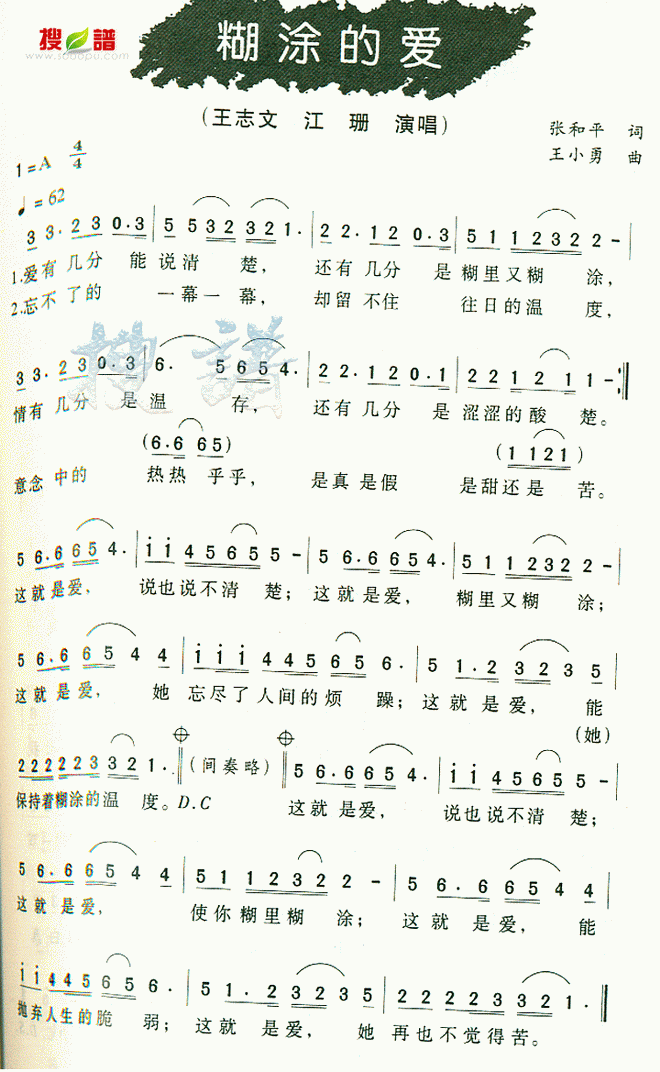 搜 譜
www.sooopu.com
糊涂的爱
(王志文 江 珊 演唱)
张和平 词
王小勇 曲
1=A 4/4
♩=62
3 3·2 3 0·3 | 5 5 3 2 3 2 1· | 2 2·1 2 0·3 | 5 1 1 2 3 2 2 - |
1.爱有 几分 能 说清 楚， 还有 几分 是 糊里又糊 涂，
2.忘不 了的 一幕一 幕， 却留 不住 往日的温 度，
3 3·2 3 0·3 | 6· 5 6 5 4· | 2 2·1 2 0·3 | 2 2 1 2 1 1 - :‖
情有 几分 是温 存， 还有 几分 是 涩涩的酸 楚。
(6·6 6 5) (1 1 2 1)
意念 中的 热热 乎乎， 是真 是假 是甜还是 苦。
5 6·6 6 5 4· | i i 4 5 6 5 5 - | 5 6·6 6 5 4· | 5 1 1 2 3 2 2 - |
这就 是爱， 说也说不清 楚； 这就 是爱， 糊里又糊 涂；
5 6·6 6 5 4 4 | i i i 4 4 5 6 5 6· | 5 1·2 3 2 3 5 |
这就 是爱， 她 忘尽了人间的烦 躁；这就 是爱， 能
(她)
2 2 2 2 2 3 3 2 1· ‖ (间奏略) ‖ 5 6·6 6 5 4· | i i 4 5 6 5 5 - |
保持着糊涂的温 度。D.C 这就 是爱， 说也说不清 楚；
5 6·6 6 5 4 4 | 5 1 1 2 3 2 2 - | 5 6·6 6 5 4 4 |
这就 是爱， 使你 糊里糊 涂； 这就 是爱， 能
i i 4 4 5 6 5 6· | 5 1·2 3 2 3 5 | 2 2 2 2 3 3 2 1· ‖
抛弃人生的脆 弱；这就 是爱， 她 再也不觉得苦。